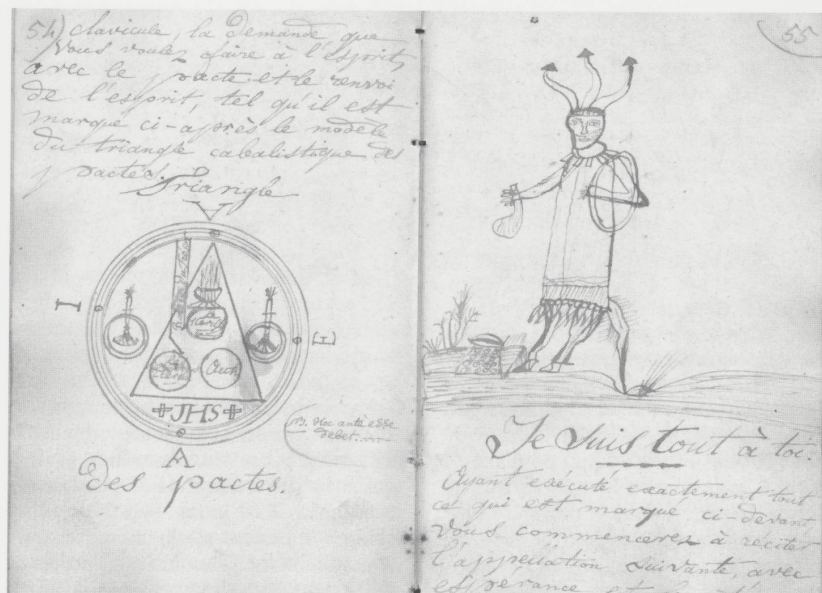 54) clavicule, la demande que
vous voulez faire à l'esprit,
avec le pacte et le renvoi
de l'esprit, tel qu'il est
marqué ci-après le modèle
du triangle cabalistique des
pactes.
Triangle
V
I
E
+JHS+
A
des pactes.
Hoc ante esse
debet.
55
Je Suis tout à toi.
Ayant exécuté exactement tout
ce qui est marqué, ci-devant
vous commencerez à réciter
l'appellation suivante, avec
espérance et